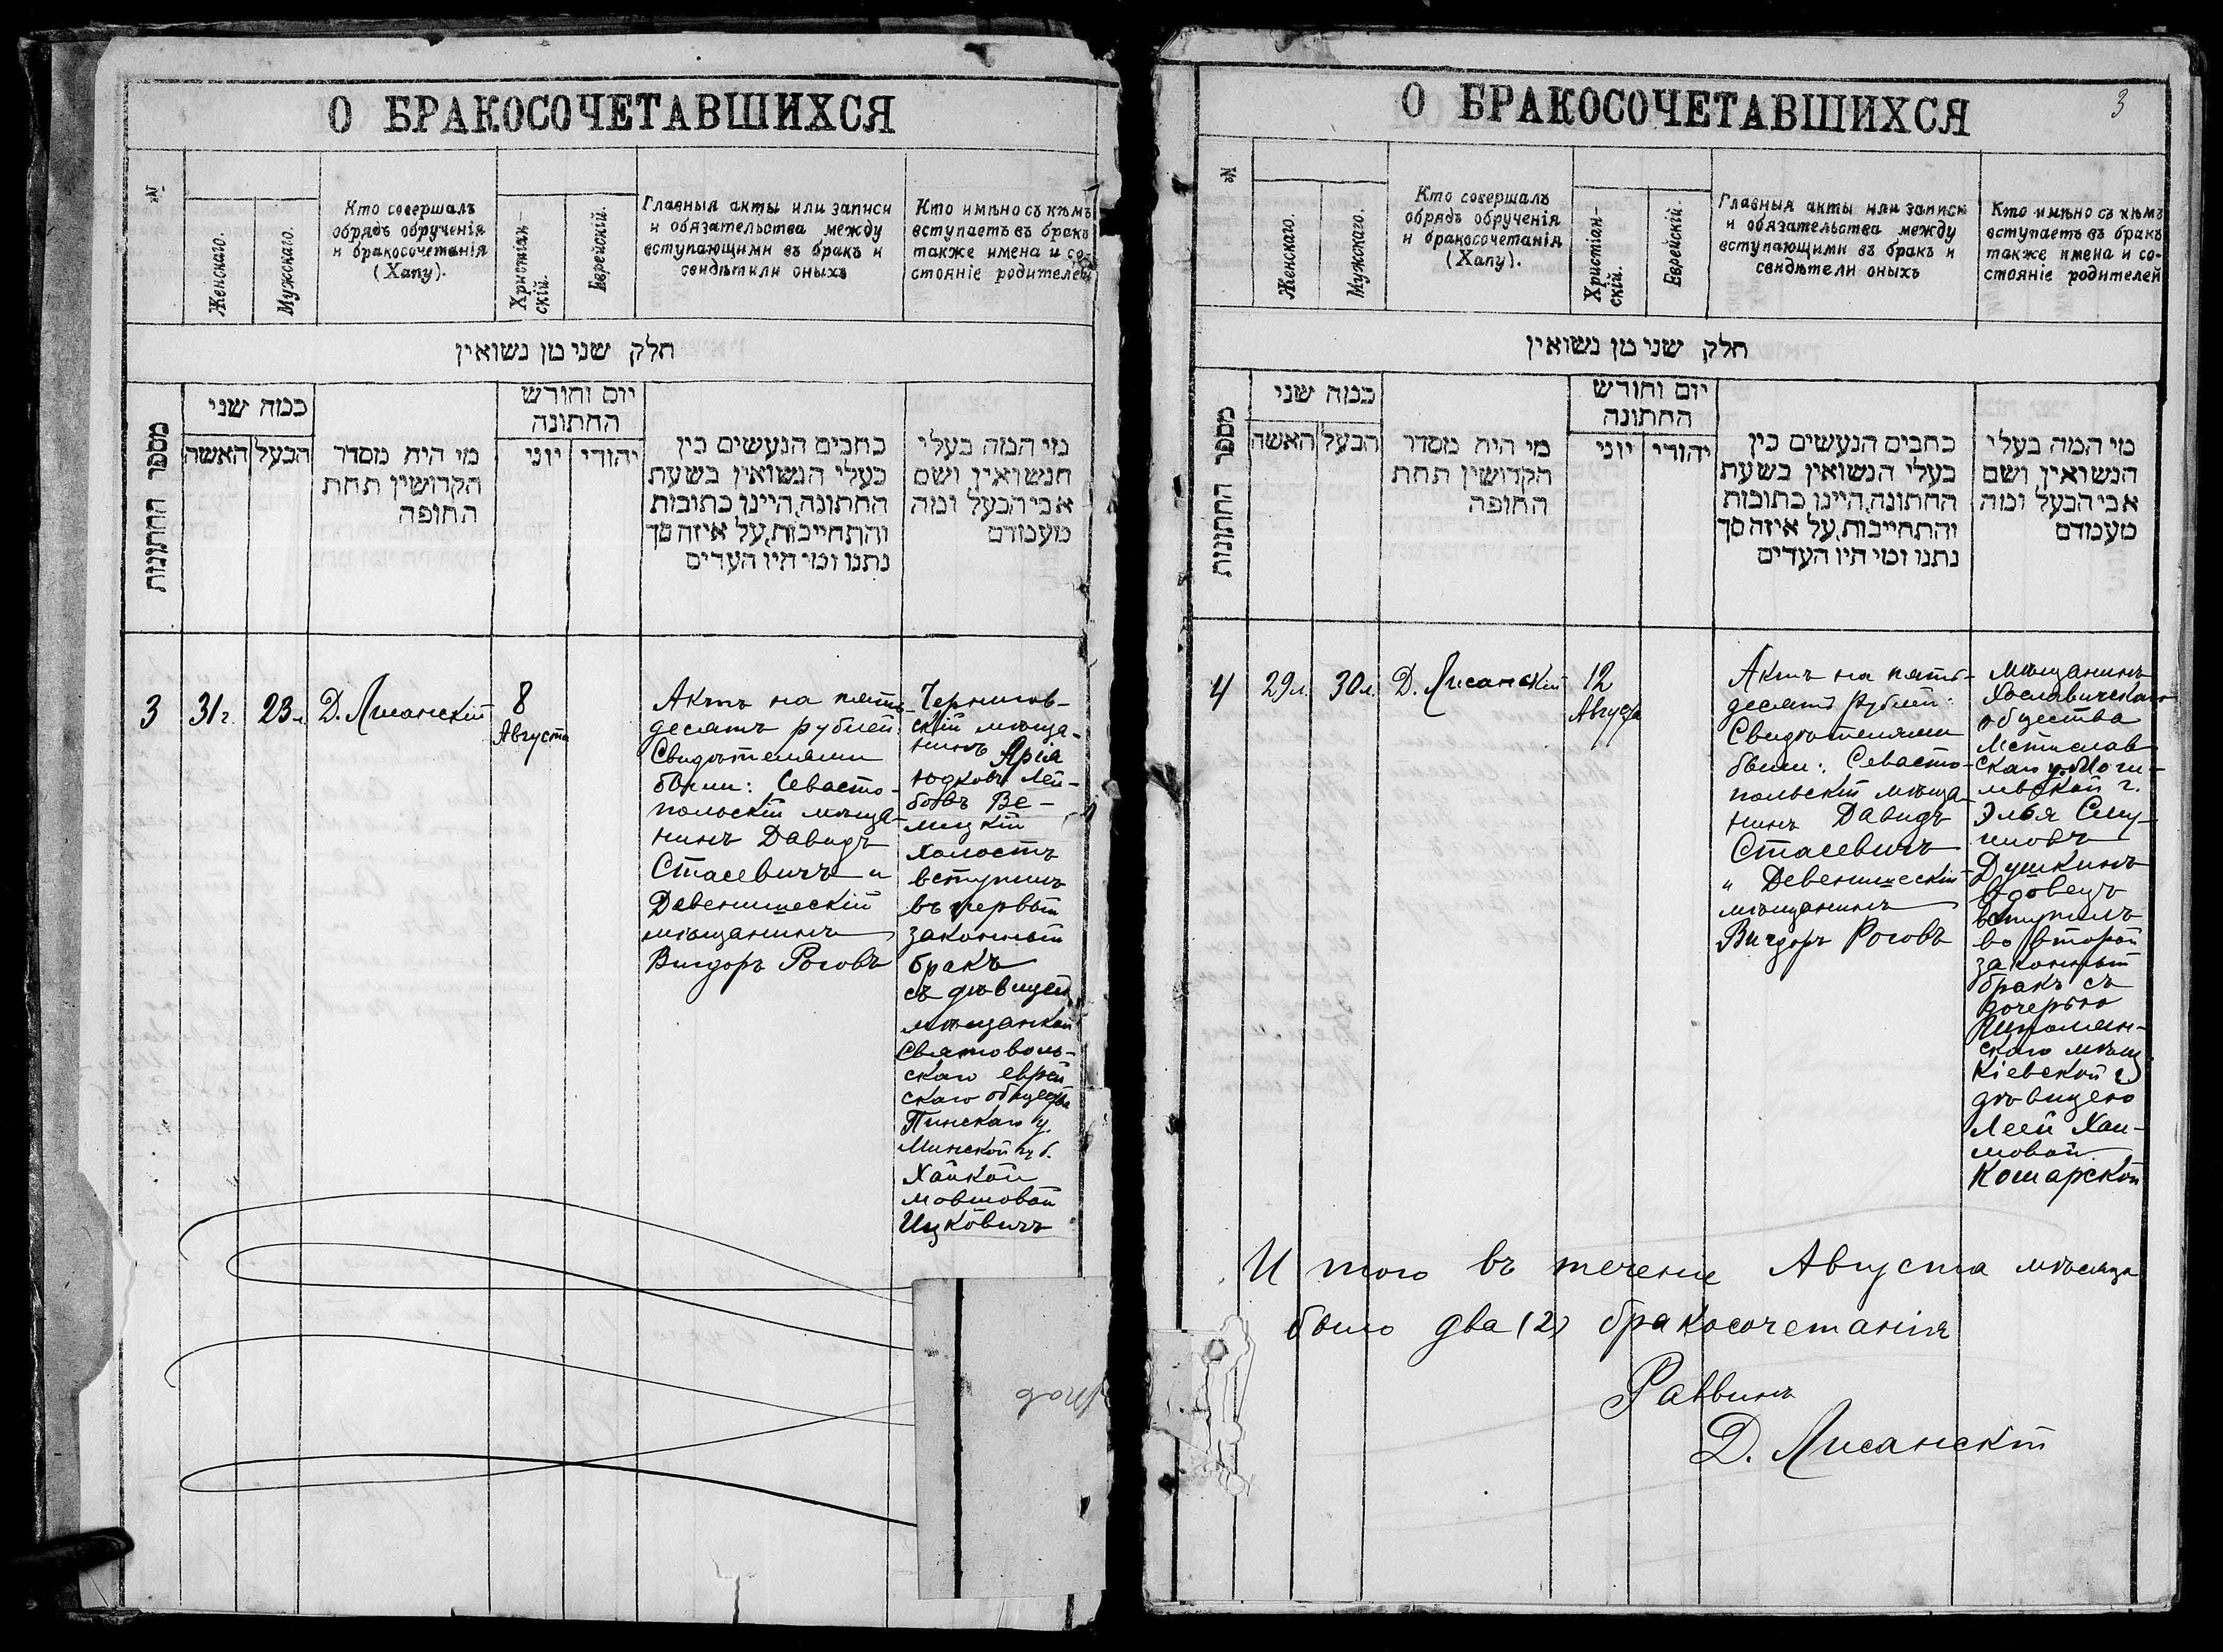 О БРАКОСОЧЕТАВШИХСЯ
№
Женскаго.
Мужскаго.
Кто совершалъ
обрядъ обрученія
и бракосочетанія
(Хапу).
Христіан-
скій.
Еврейскій.
Главныя акты или записи
и обязательства между
вступающими въ бракъ и
свидѣтили оныхъ
Кто имѣно съ кѣмъ
вступаетъ въ бракъ
также имена и со-
стояніе родителей
חלק שני מן נשואין
מספר החתונות
כמה שני
הבעל
האשה
מי היה מסדר
הקדושין תחת
החופה
יום וחורש
החתונה
יוני
יהודי
כתבים הנעשים בין
בעלי הנשואין בשעת
החתונה, היינו כתובות
והתחייבות, על איזה סך
נתנו ומי היו העדים
מי המה בעלי
הנשואין ושם
אבי הבעל ומה
מעמדם
3
31 г.
23 л.
Д. Лисанскій
8
Августа
Актъ на пять-
десятъ рублей.
Свидѣтелями
были: Севасто-
польскій мѣща-
нинъ Давидъ
Стасевичъ и
Девенишескій
мѣщанинъ
Вигдоръ Роговъ
Чернигов-
скій мѣща-
нинъ Арія
Юдковъ Лей-
бовъ Ве-
лицкій
холостъ
вступилъ
въ первый
законный
бракъ
съ дѣвицей
мѣщанкой
Святоволь-
скаго еврей
скаго общества
Пинскаго у.
Минской губ.
Хайкой
Мовшовой
Ицковичъ
О БРАКОСОЧЕТАВШИХСЯ
3
№
Женскаго.
Мужскаго.
Кто совершалъ
обрядъ обрученія
и бракосочетанія
(Хапу).
Христіан-
скій.
Еврейскій.
Главныя акты или записи
и обязательства между
вступающими въ бракъ и
свидѣтели оныхъ
Кто имѣно съ кѣмъ
вступаетъ въ бракъ
также имена и со-
стояніе родителей
חלק שני מן נשואין
מספר החתונות
כמה שני
הבעל
האשה
מי היה מסדר
הקדושין תחת
החופה
יום וחורש
החתונה
יוני
יהודי
כתבים הנעשים בין
בעלי הנשואין בשעת
החתונה, היינו כתובות
והתחייבות, על איזה סך
נתנו ומי היו העדים
מי המה בעלי
הנשואין ושם
אבי הבעל ומה
מעמדם
4
29 л.
30 л.
Д. Лисанскій
12
Августа
Актъ на пять-
десятъ рублей.
Свидѣтелями
были: Севасто-
польскій мѣща-
нинъ Давидъ
Стасевичъ
и Девенишескій
мѣщанинъ
Вигдоръ Роговъ
мѣщанинъ
Хославичскаго
общества
Мстислав-
скаго у. Моги-
левской г.
Элья
Душкинъ
вдовецъ
вступилъ
во второй
законный
бракъ съ
дочерью
скаго мѣщ.
Кіевской г.
дѣвицею
Леей Хаи-
мовой
Комарской
И того въ теченіе Августа мѣсяца
было два (2) бракосочетанія
Раввинъ
Д. Лисанскій